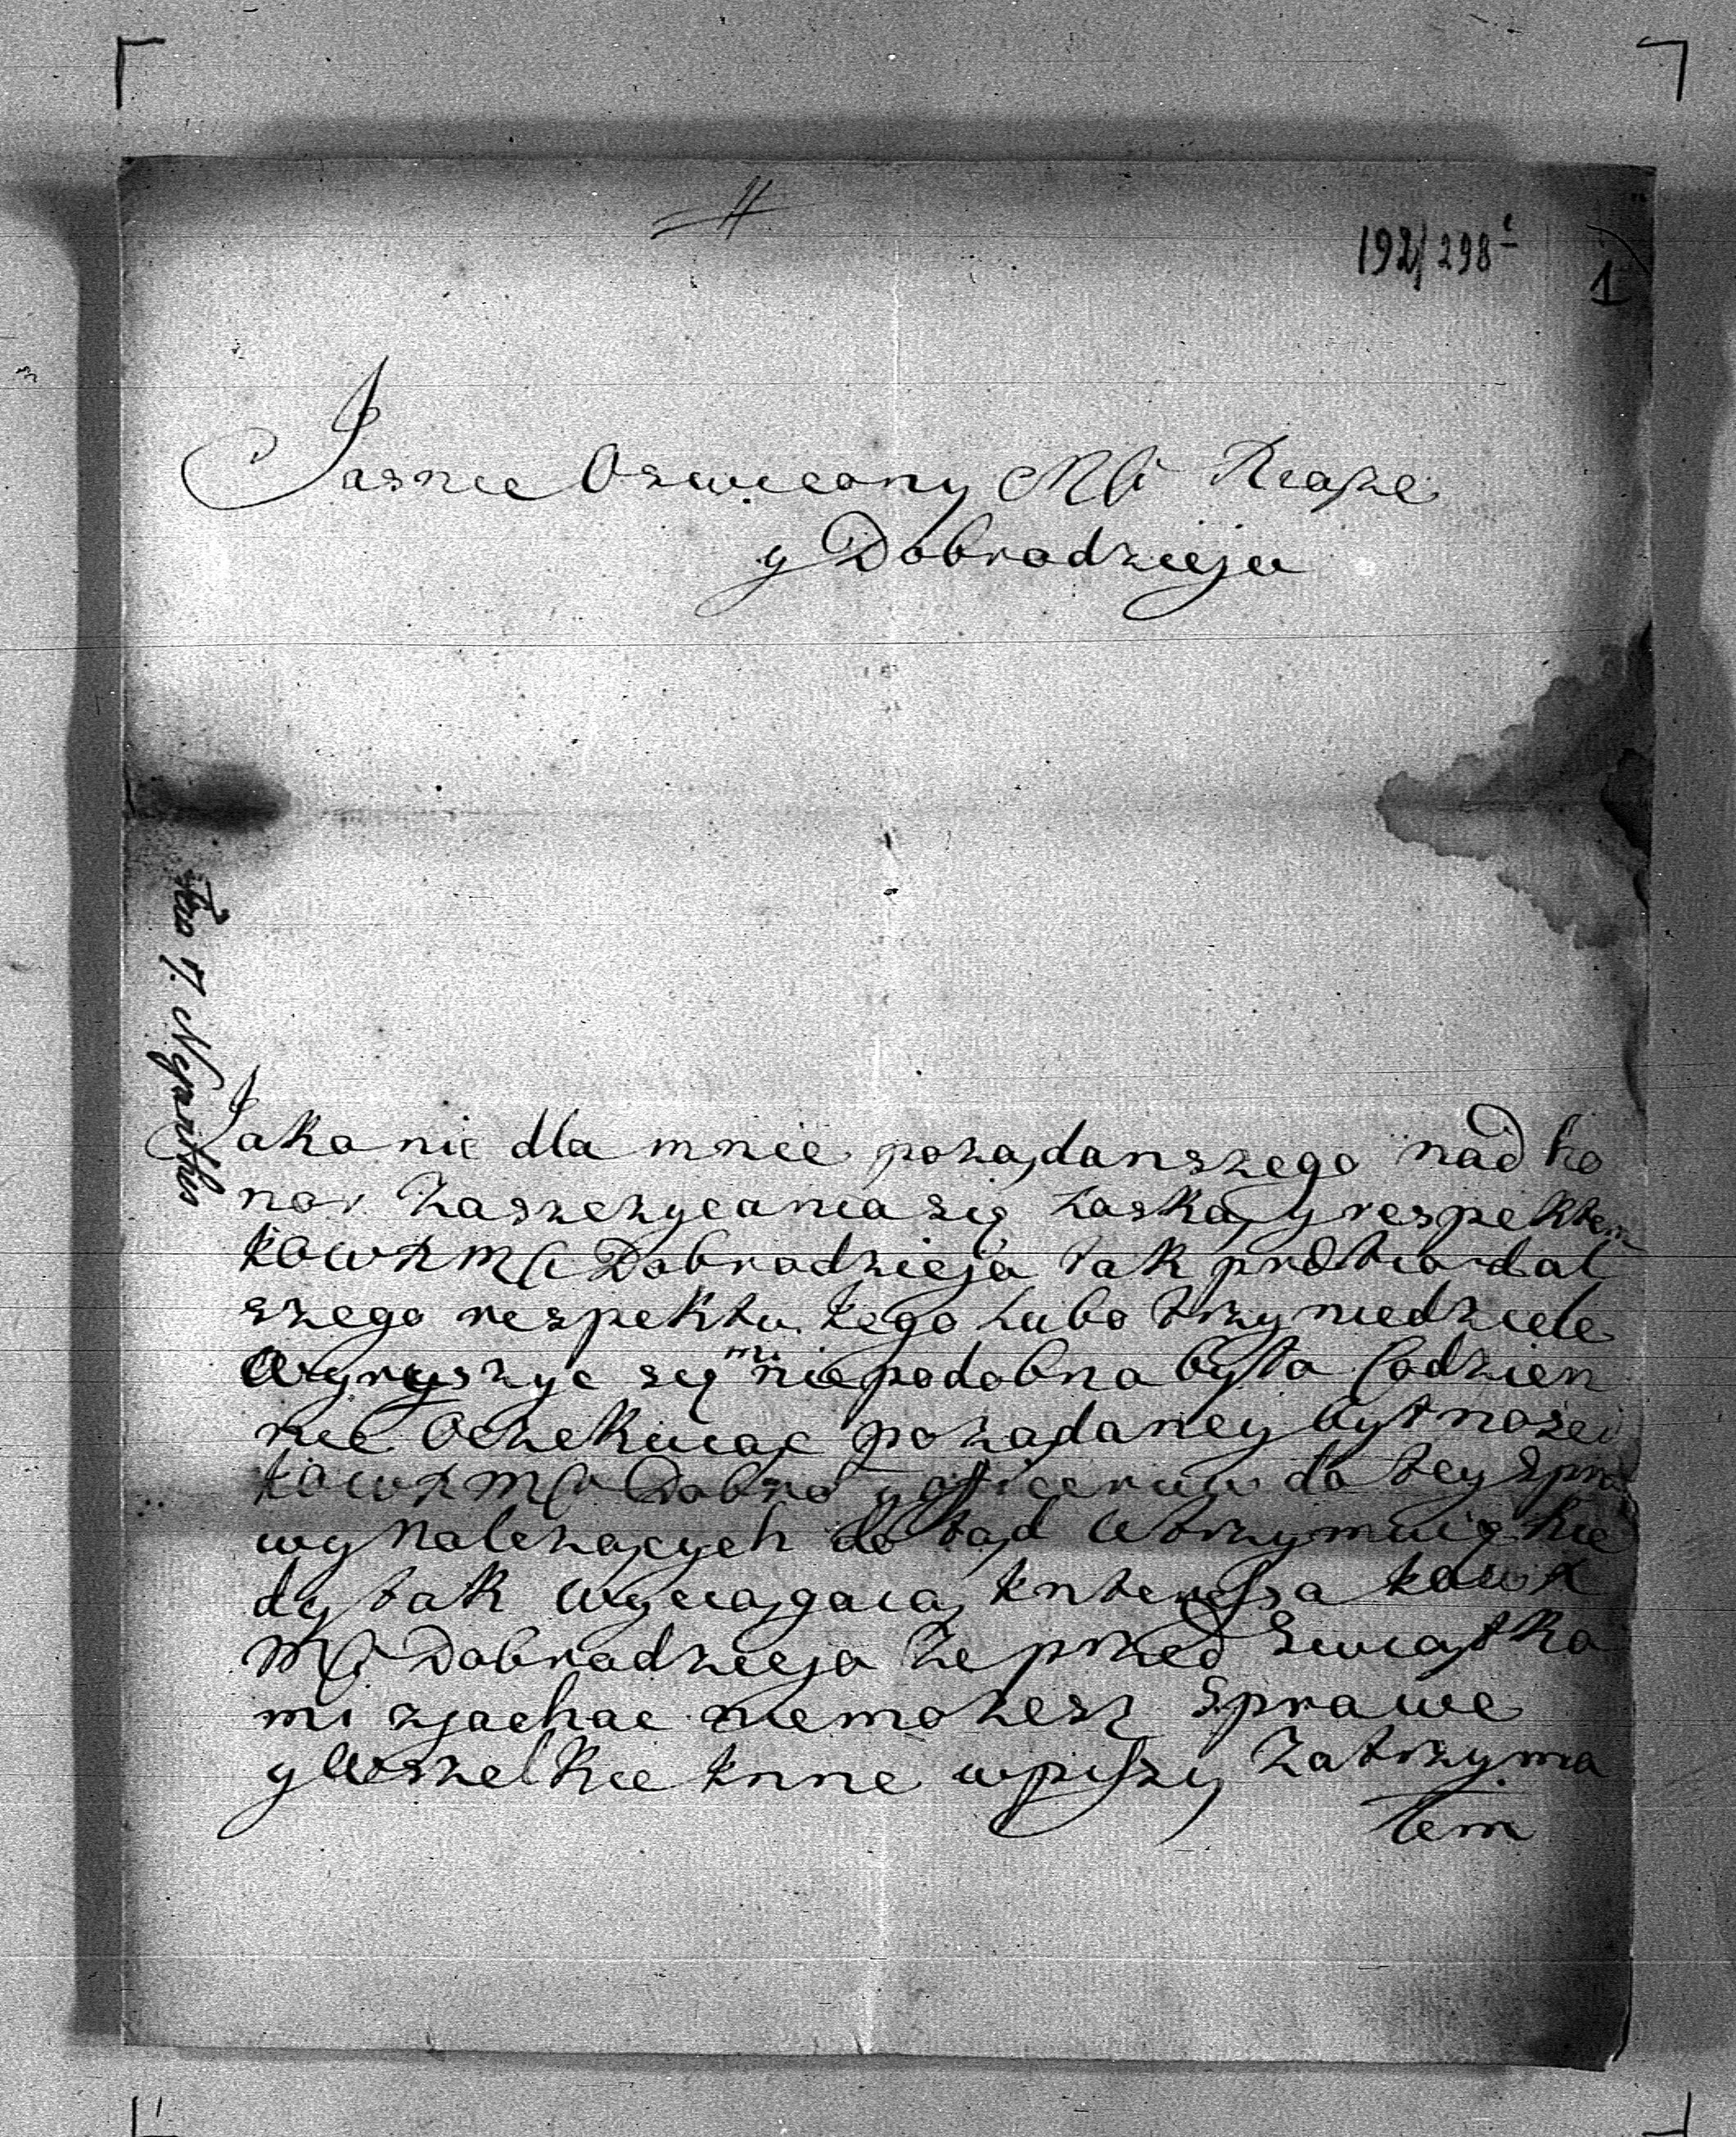 192/298
1
Jasnie Oswiecony Mci Xiaze
y Dobrodzieju
Jako nic dla mnie pożądanszego nad ho
nor zaszczycania się łaską y respektem
Mci Dobrodzieja tak
szego respektu tego lubo trzy niedziele
wyruszyc się mi niepodobna było codzien
nie oczekuiąc pożądaney bytnosci
Mci Dobro y oficerow do tey spra
wy należących do tąd utrzymuię kie
dy tak wyciągaią Interessa
Mci Dobrodzieja że przed Swiątka
mi zjachac niemożesz sprawe
y wszelkie Inne wpissy zatrzyma
łem